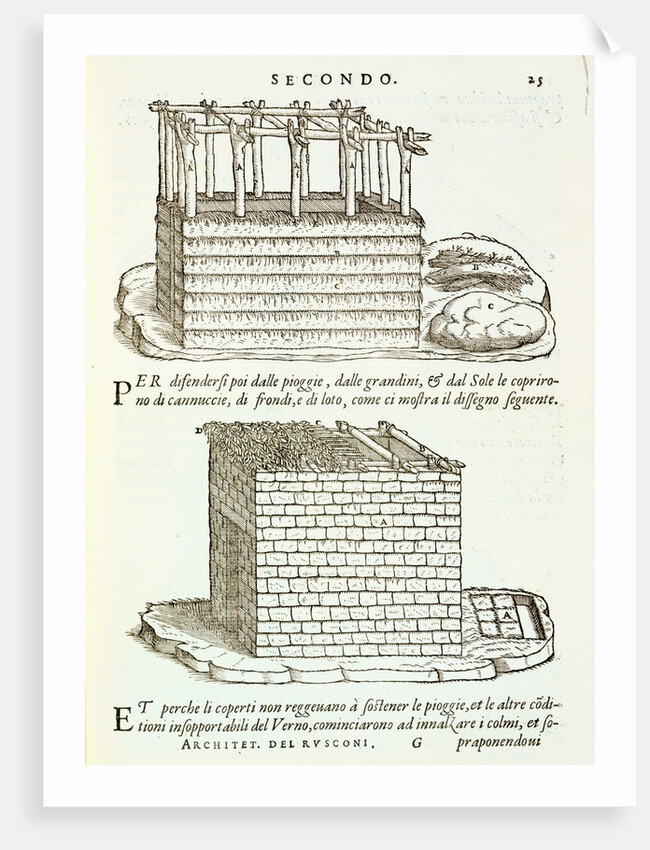 SECONDO. 25
A A A A A
B
C
B
C
PER difendersi poi dalle pioggie, dalle grandini, & dal Sole le copriro-
no di cannuccie, di frondi, e di loto, come ci mostra il dissegno seguente.
D C B
A
A
ET perche li coperti non reggeuano à sostener le pioggie, et le altre cõdi-
tioni insopportabili del Verno, cominciarono ad innalzare i colmi, et so-
ARCHITET. DEL RVSCONI. G praponendoui